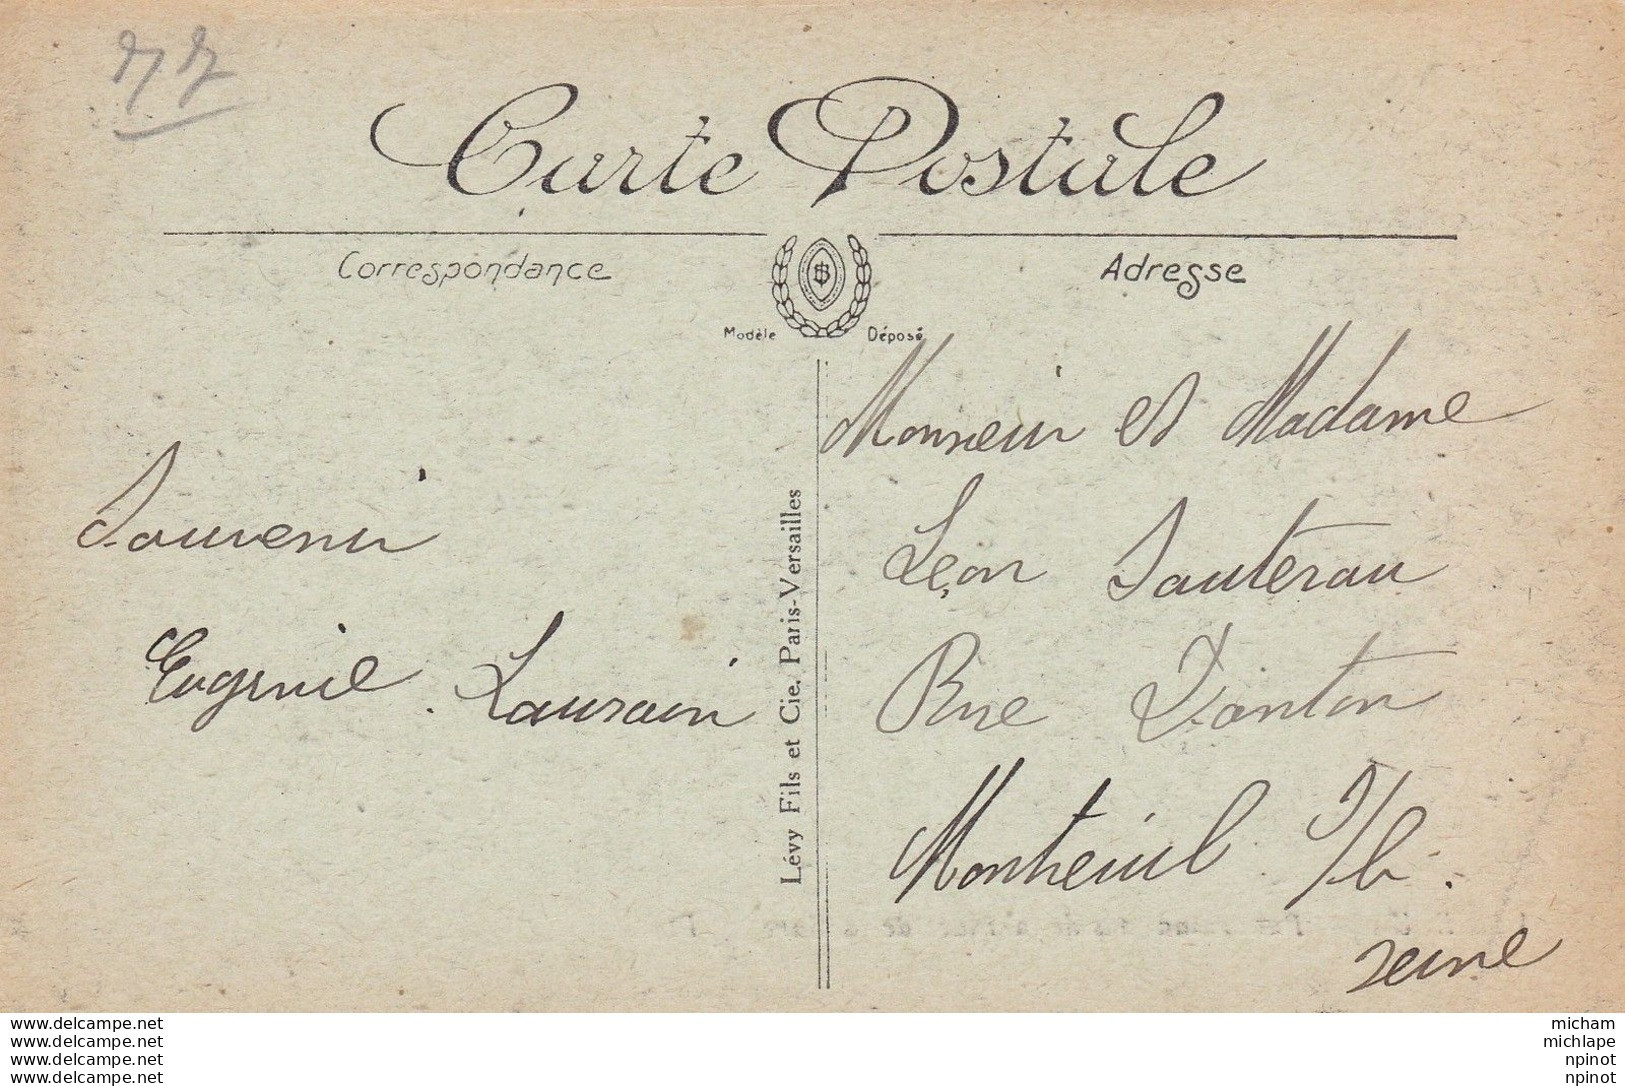 77
Carte Postale
Correspondance
Adresse
Modèle
Déposé
Souvenir
Eugenie Laurain
Lévy Fils et Cie, Paris-Versailles
Monsieur et Madame
Léon Sauterau
Rue Danton
Montreuil s/b.
Seine
www.delcampe.net
www.delcampe.net
www.delcampe.net
www.delcampe.net
micham
michlape
npinot
npinot